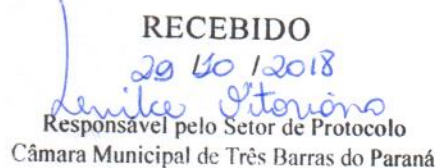 RECEBIDO
29/10/2018
Lenilce Vitoriano
Responsável pelo Setor de Protocolo
Câmara Municipal de Três Barras do Paraná